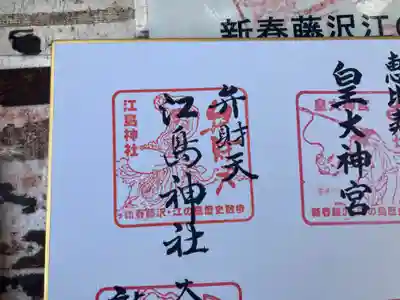 新春藤沢江の
恵比寿
皇大神宮
新春藤沢・江の島歴
弁財天
江島神社
江島神社
新春藤沢・江の島歴史散歩
大